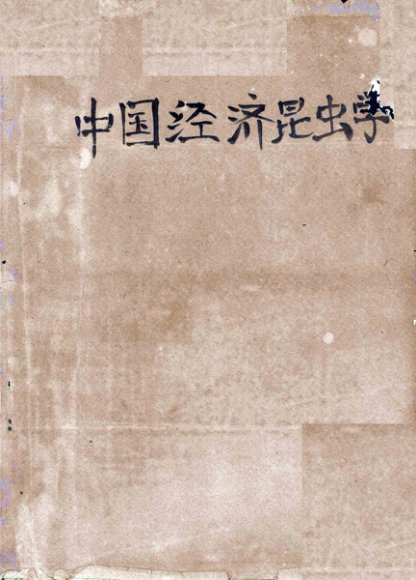 中国经济昆虫学